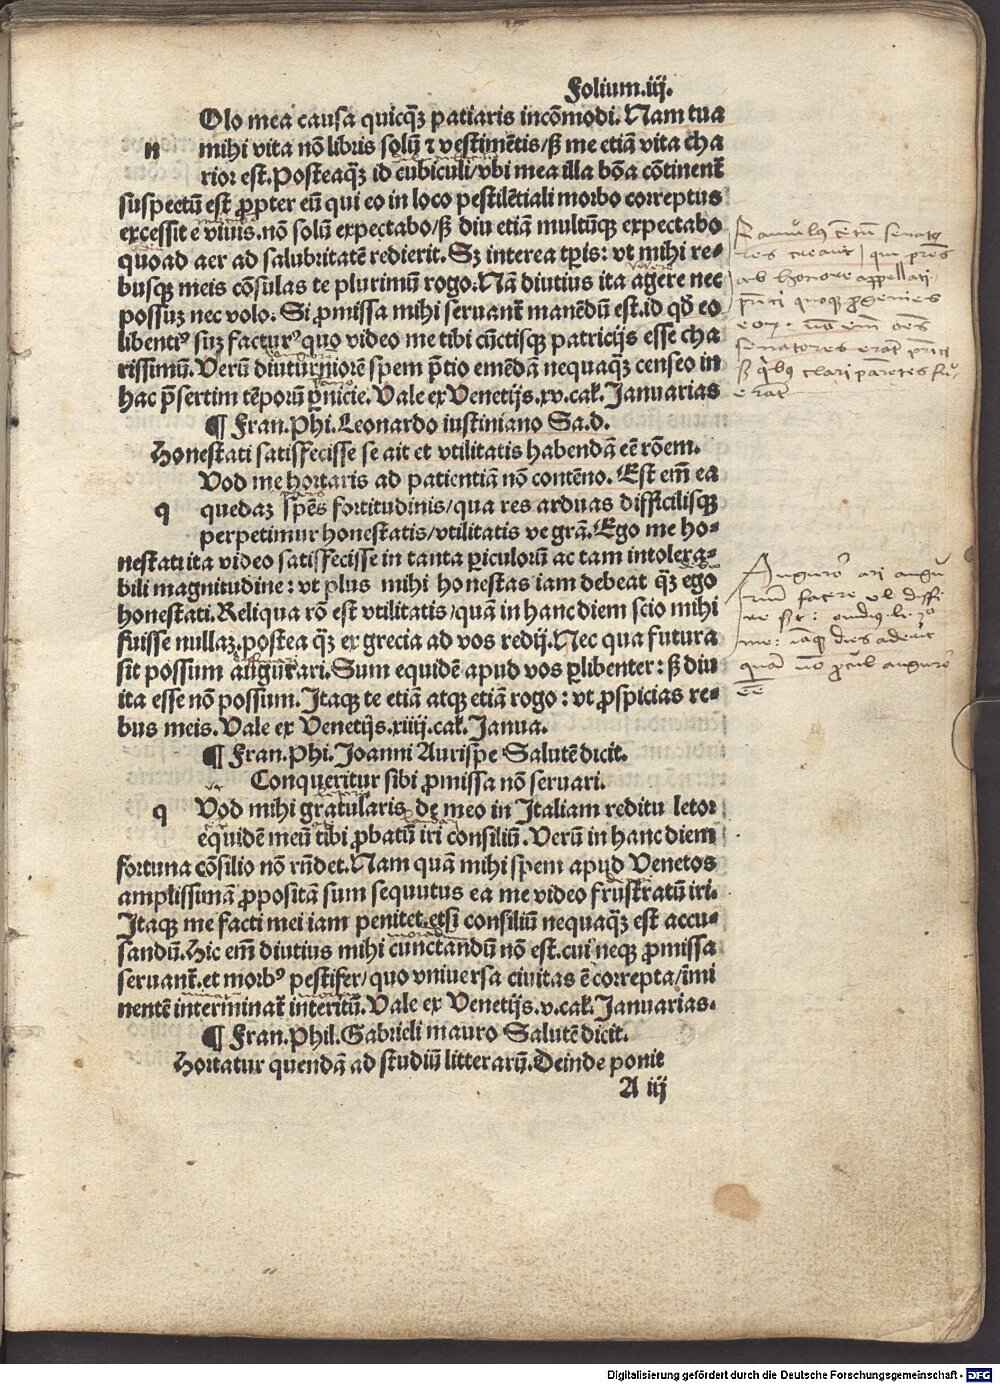 Folium.iij.
Olo mea causa quicq̃ patiaris incõmodi. Nam tua
n mihi vita nõ libris solũ ⁊ vestimẽtis/sꝫ me etiã vita cha
rior est. Posteaq̃ꝫ id cubiculi/vbi mea illa bõa cõtinent̃
suspectũ est ꝓpter eũ qui eo in loco pestilẽtiali morbo correptus
excessit e viuis. nõ solũ expectabo/sꝫ diu etiã multũqꝫ expectabo
quoad aer ad salubritatẽ redierit. Sꝫ interea tꝑis: vt mihi re⸗
busqꝫ meis cõsulas te plurimũ rogo. Nã diutius ita agere nec
possuꝫ nec volo. Si ꝓmissa mihi seruant̃ manẽdũ est. id qd̓ eo
libentiꝰ suꝫ facturꝰ quo video me tibi cũctisqꝫ patricijs esse cha
rissimũ. Verũ diuturniorẽ spem p̃tio emẽdã nequaq̃ꝫ censeo in
hac p̃sertim tẽporũ ꝑnicie. Vale ex Venetijs. xv. cal. Januarias
¶ Fran. Phi. Leonardo iustiniano Sa. d.
Honestati satisfecisse se ait et vtilitatis habendã eẽ rõem.
Vod me hortaris ad patientiã nõ contẽno. Est em̃ ea
q quedaꝫ spẽs fortitudinis/qua res arduas difficilisqꝫ
perpetimur honestatis/vtilitatis ve grã. Ego me ho⸗
nestati ita video satisfecisse in tanta ꝑiculorũ ac tam intolera⸗
bili magnitudine: vt plus mihi honestas iam debeat q̃ꝫ ego
honestati. Reliqua rõ est vtilitatis/quã in hanc diem scio mihi
fuisse nullaꝫ. postea q̃ꝫ ex grecia ad vos redij. Nec qua futura
sit possum augurari. Sum equidẽ apud vos ꝑlibenter: sꝫ diu
ita esse nõ possum. Itaqꝫ te etiã atqꝫ etiã rogo: vt ꝓspicias re⸗
bus meis. Vale ex Venetijs. xiiij. cal. Janua.
¶ Fran. Phi. Joanni Aurispe Salutẽ dicit.
Conqueritur sibi ꝓmissa nõ seruari.
q Vod mihi gratularis de meo in Italiam reditu letor
equidẽ meũ tibi ꝓbatũ iri consiliũ. Verũ in hanc diem
fortuna cõsilio nõ rñdet. Nam quã mihi spem apud Venetos
amplissimã ꝓpositã sum sequutus ea me video frustratũ iri.
Itaqꝫ me facti mei iam penitet. etsi consiliũ nequaq̃ꝫ est accu⸗
sandũ. Hic em̃ diutius mihi cunctandũ nõ est. cui neqꝫ ꝓmissa
seruant̃. et morbꝰ pestifer/quo vniuersa ciuitas ẽ correpta/imi
nentẽ interminat̃ interitũ. Vale ex Venetijs. v. cal. Januarias.
¶ Fran. Phil. Gabrieli mauro Salutẽ dicit.
Hortatur quendã ad studiũ litterarũ. Deinde ponit
A iij
senato
res creant
ab honore appellati
quoqꝫ ꝓgenies
senatores erãt
clari parẽtes fu
erãt
Auguror ari augu
rium facere vl diffi
dies aderit
quã nõ ꝓcul auguror
eẽ
Digitalisierung gefördert durch die Deutsche Forschungsgemeinschaft - DFG